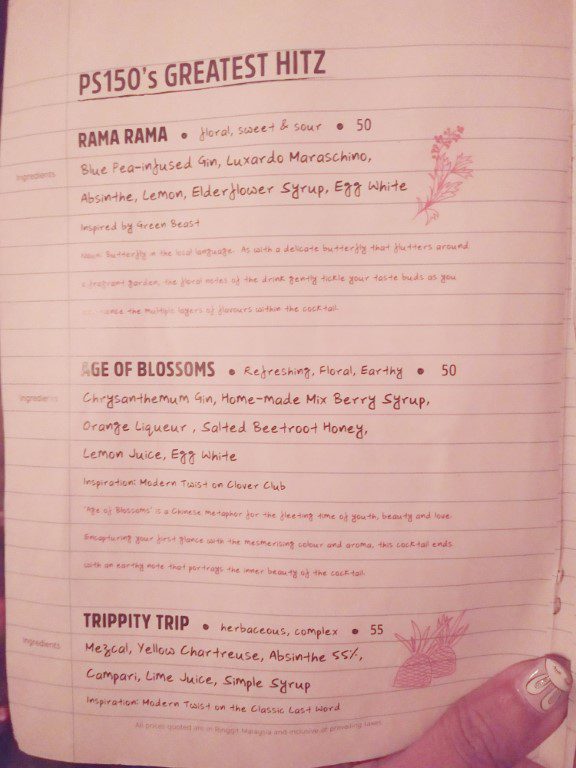 PS150's GREATEST HITZ
RAMA RAMA • floral, sweet & sour • 50
Ingredients
Blue Pea-infused Gin, Luxardo Maraschino,
Absinthe, Lemon, Elderflower Syrup, Egg White
Inspired by Green Beast
Noun. Butterfly in the local language. As with a delicate butterfly that flutters around
a fragrant garden, the floral notes of the drink gently tickle your taste buds as you
the multiple layers of flavours within the cocktail.
AGE OF BLOSSOMS • Refreshing, Floral, Earthy • 50
Ingredients
Chrysanthemum Gin, Home-made Mix Berry Syrup,
Orange Liqueur , Salted Beetroot Honey,
Lemon Juice, Egg White
Inspiration: Modern Twist on Clover Club
'Age of Blossoms' is a Chinese metaphor for the fleeting time of youth, beauty and love.
Encapturing your first glance with the mesmerising colour and aroma, this cocktail ends
with an earthy note that portrays the inner beauty of the cocktail.
TRIPPITY TRIP • herbaceous, complex • 55
Ingredients
Mezcal, Yellow Chartreuse, Absinthe 55%,
Campari, Lime Juice, Simple Syrup
Inspiration: Modern Twist on the Classic Last Word
All prices quoted are in Ringgit Malaysia and inclusive of prevailing taxes.